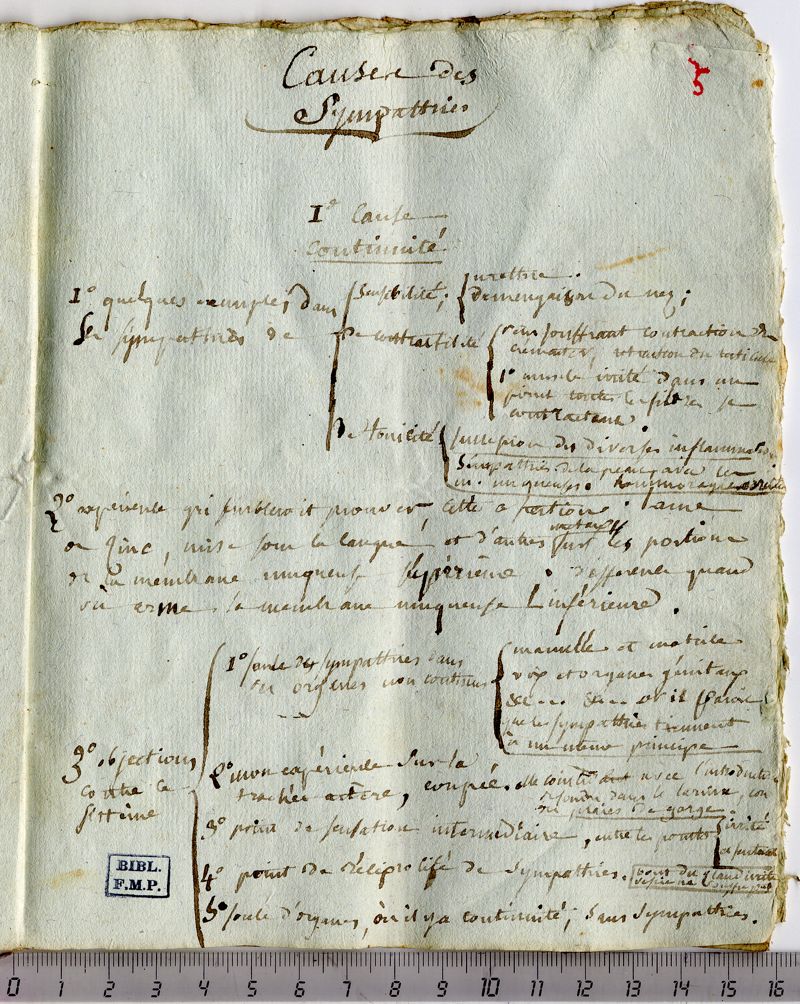 5
Causes des
Sympathies
1° Cause
continuité
1° quelques exemples dans
les sympathies de
sensibilité;
urethre.
demengaison du nez;
de contractilité
rein souffrant contraction du
cremaster, retraction du testicule
1° muscle irrité dans un
point toutes les fibres se
contractent
de tonicité
des diverses inflammations
sympathies de la peau avec les
m. muqueuses. hemmoragies
2° expérience qui sembleroit prouver cette assertion. lame
de Zinc, mise sous la langue, et d'autres metaux sur les portions
de la membrane muqueuse supérieure. difference quand
on arme la membrane muqueuse inférieure.
3° objections
contre ce
systeme
1° foule de sympathies dans
des organes non continus
mamelle et matrice
voix et organes génitaux
&c... &c... or il paroit
que les sympathies tiennent
à un même principe
2° mon expérience sur la
trachée artere, coupée.
avec l'introduction
dans le larinx, ou
de gorge.
3° point de sensation intermédiaire, entre les points
irrité
et sentant
4° point de réciprocité de sympathies.
bout du gland irrité
5° foule d'organes, où il y a continuité, sans sympathies.
BIBL.
F.M.P.
0 1 2 3 4 5 6 7 8 9 10 11 12 13 14 15 16